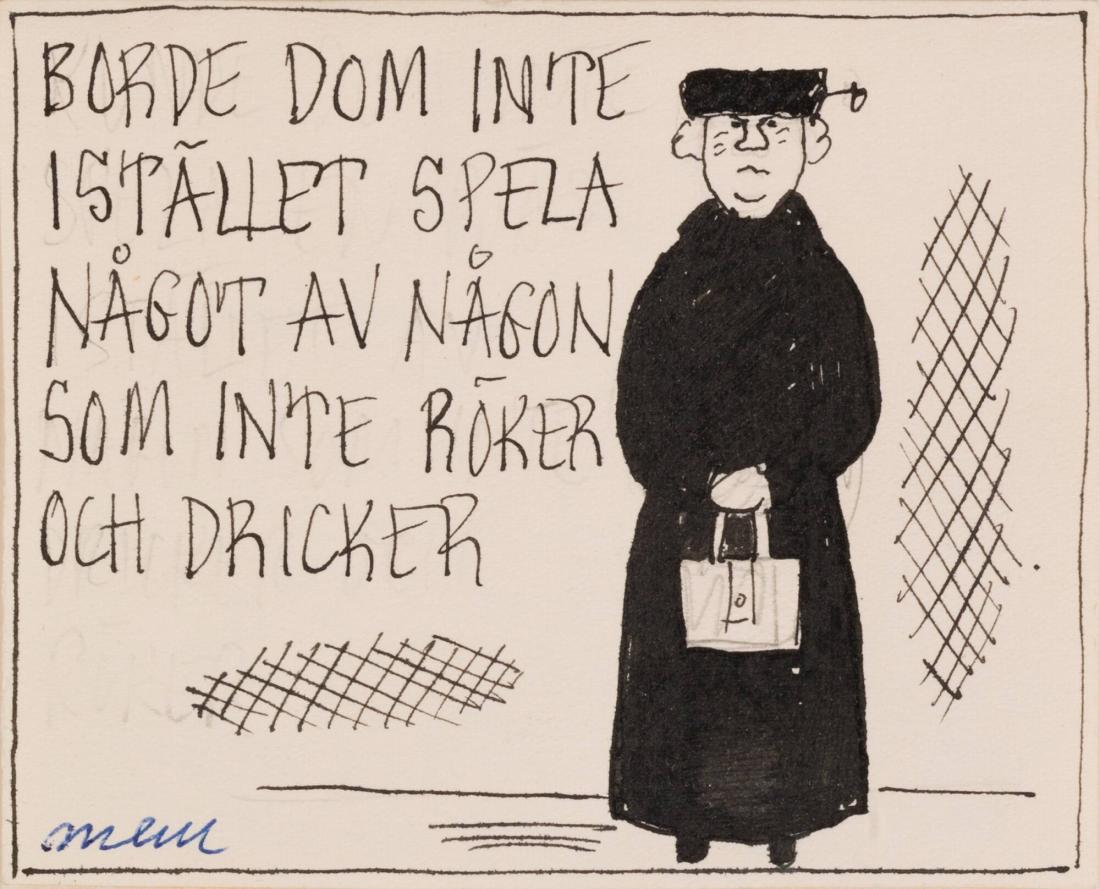 BORDE DOM INTE
ISTÄLLET SPELA
NÅGOT AV NÅGON
SOM INTE RÖKER
OCH DRICKER
mem